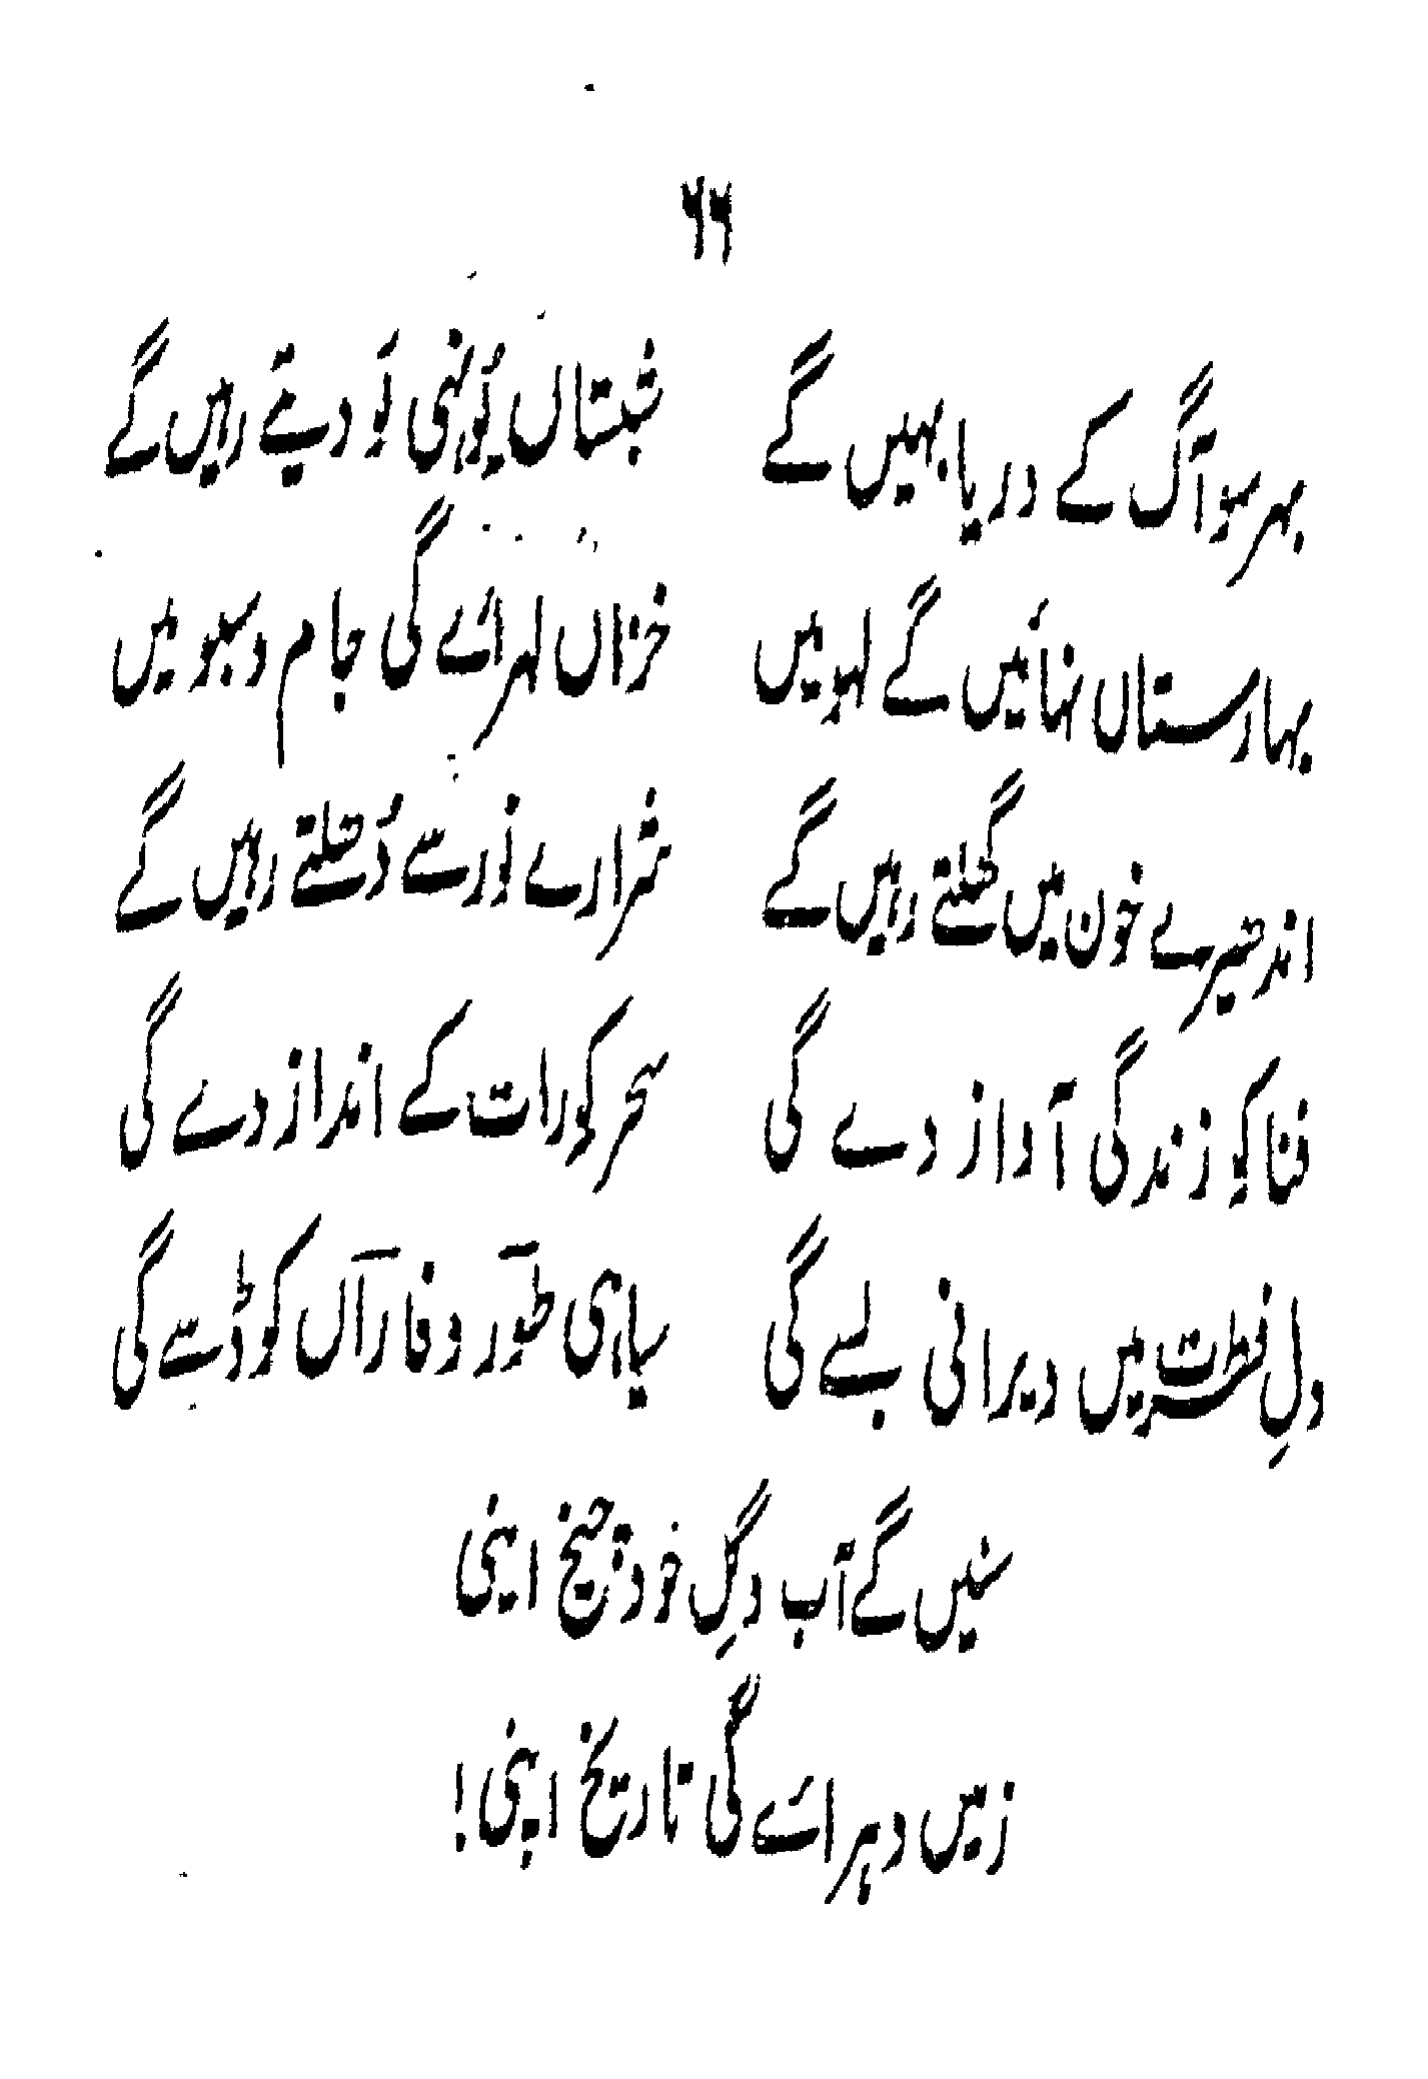 ۶۶
بہر سو آگ کے دریا بہیں گے شبستاں یُونہی لَو دیتے رہیں گے
بہارستاں نہائیں گے لہو میں خزاں لہرائے گی جام و سبو میں
اندھیرے خون میں گھلتے رہیں گے شرارے نور سے دُھلتے رہیں گے
فنا کو زندگی آواز دے گی سحر کو رات کے انداز دے گی
دلِ فطرت میں ویرانی بسے گی سیاہی طور و فاراں کو ڈسے گی
سنیں گے آب و گِل خود چیخ اپنی
زمیں دہرائے گی تاریخ اپنی!